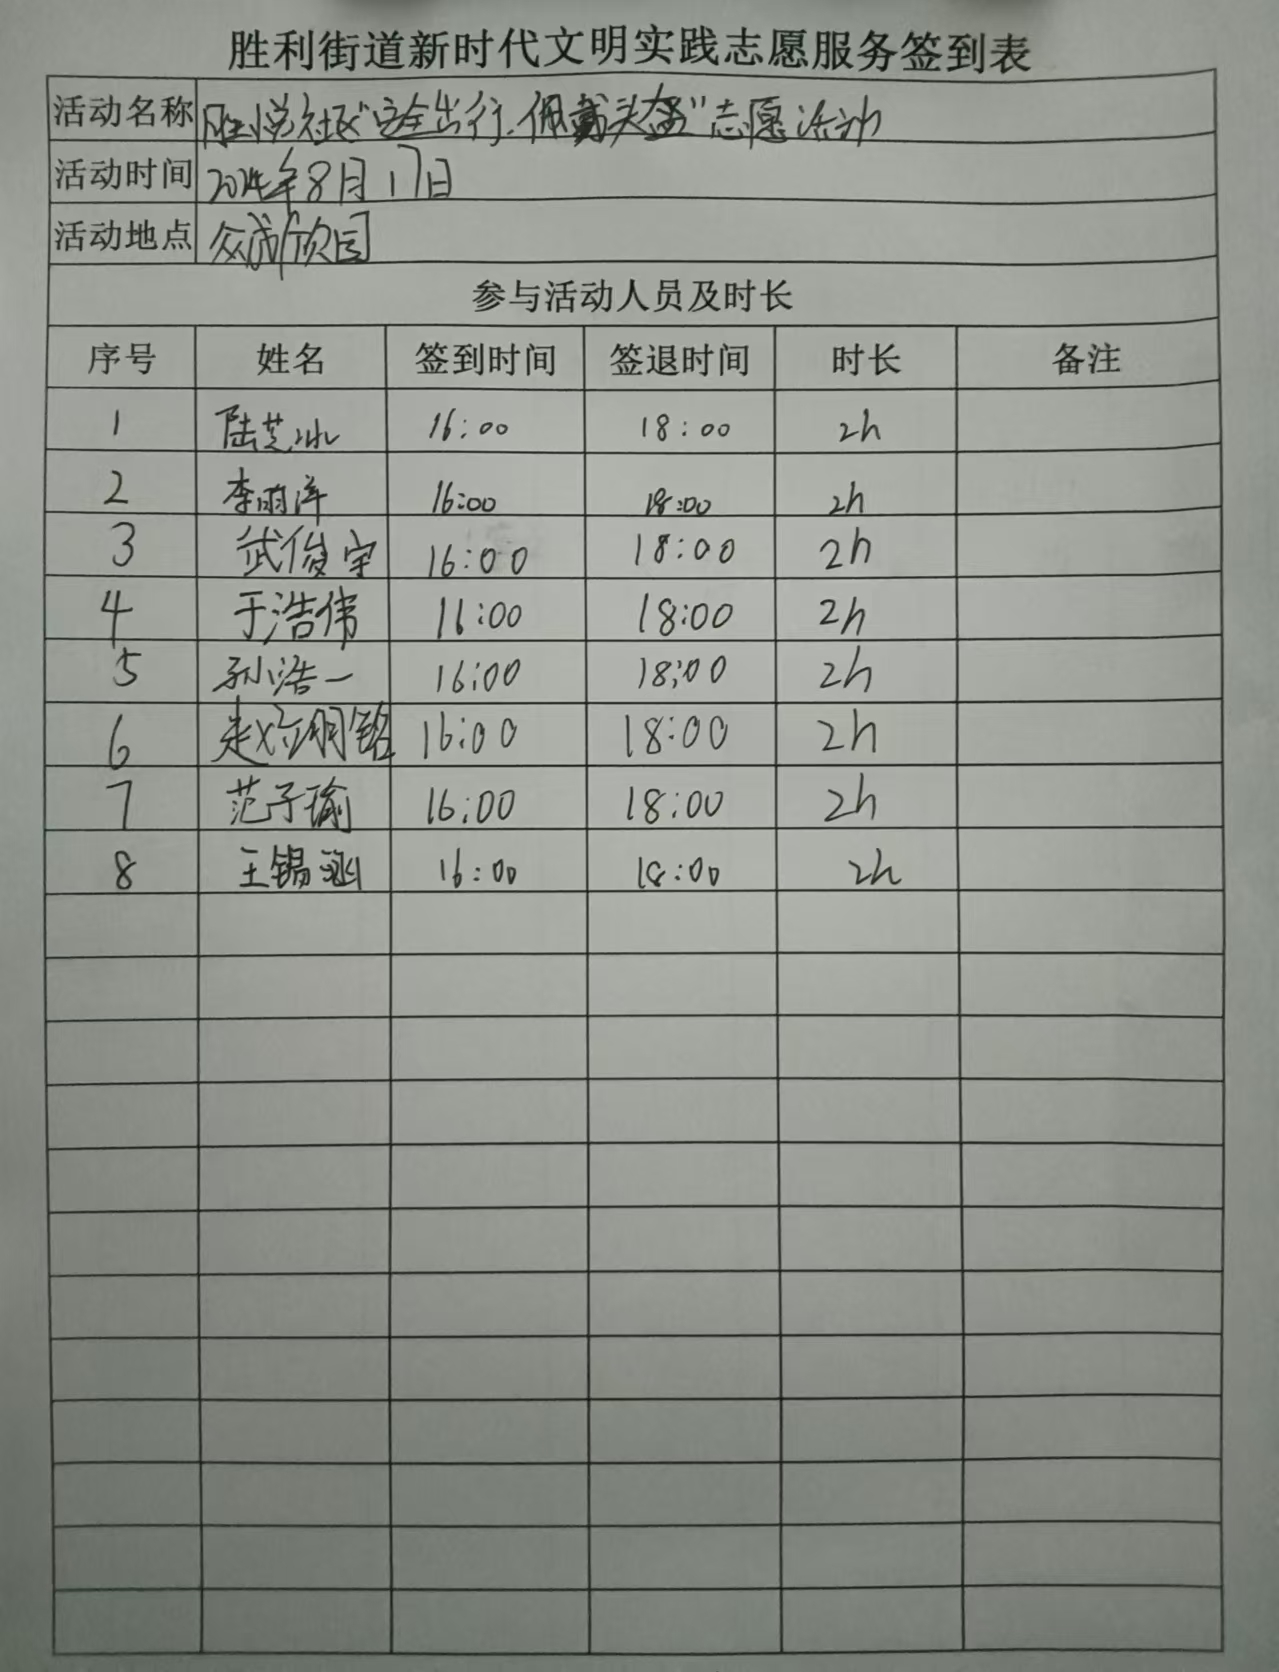 胜利街道新时代文明实践志愿服务签到表
活动名称 胜悦社区"安全出行,佩戴头盔"志愿活动
活动时间 2024年8月17日
活动地点 众成欣园
参与活动人员及时长
序号 姓名 签到时间 签退时间 时长 备注
1 陆芝冰 16:00 18:00 2h
2 李雨洋 16:00 18:00 2h
3 武俊宇 16:00 18:00 2h
4 于浩伟 16:00 18:00 2h
5 孙浩一 16:00 18:00 2h
6 赵 铭 16:00 18:00 2h
7 范子瑜 16:00 18:00 2h
8 王锡涵 16:00 18:00 2h